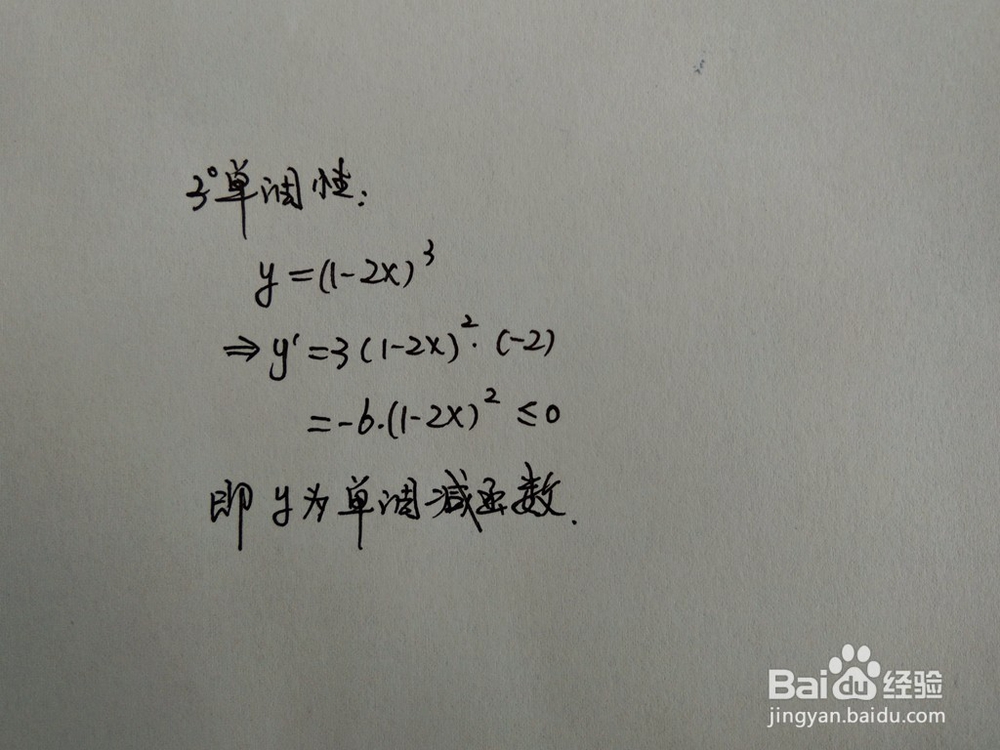 3°单调性:
y=(1-2x)³
⇒y'=3(1-2x)²·(-2)
=-6·(1-2x)²≤0
即y为单调减函数.
Bai du 经验
jingyan.baidu.com